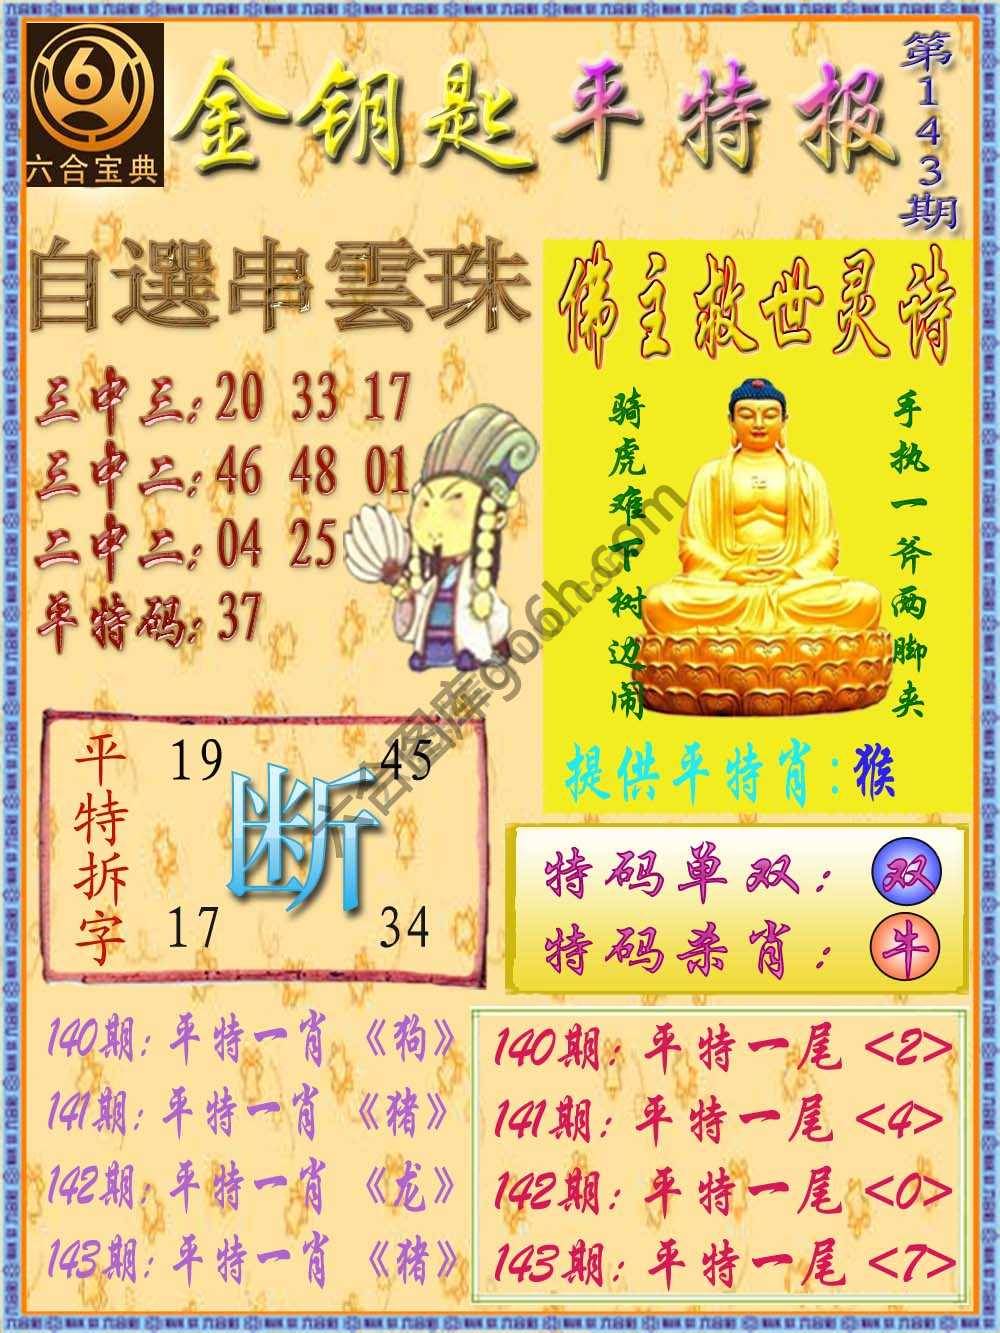 六合宝典
金钥匙平特报
第143期
自選串雲珠
三中三:20 33 17
三中二:46 48 01
二中二:04 25
单特码:37
佛主救世灵诗
骑虎难下树边闹
手执一斧两脚夹
提供平特肖:猴
平特拆字
19 45
断
17 34
特码单双:双
特码杀肖:牛
140期:平特一肖《狗》
141期:平特一肖《猪》
142期:平特一肖《龙》
143期:平特一肖《猪》
140期:平特一尾<2>
141期:平特一尾<4>
142期:平特一尾<0>
143期:平特一尾<7>
六合图库go6h.com